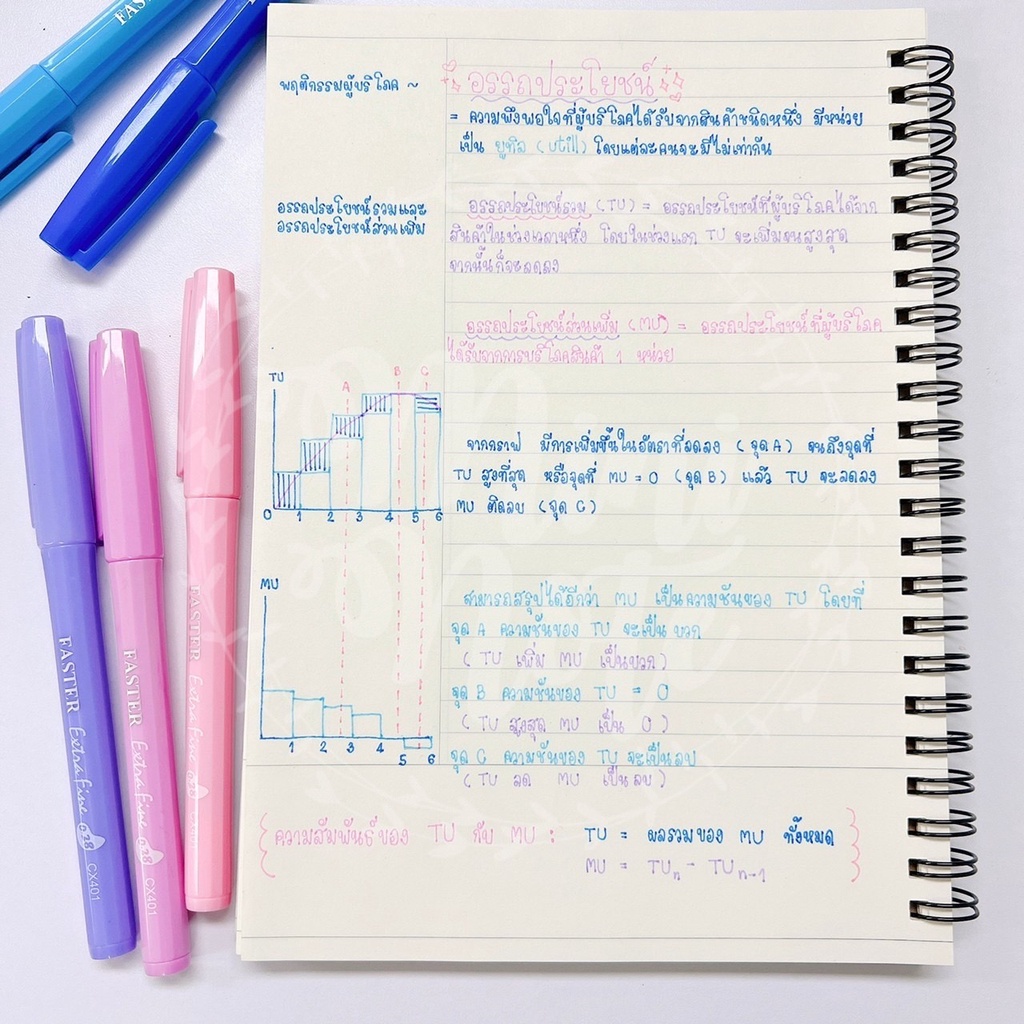 พฤติกรรมผู้บริโภค ~
อรรถประโยชน์
= ความพึงพอใจที่ผู้บริโภคได้รับจากสินค้าชนิดหนึ่ง มีหน่วย
เป็น ยูทิล (util) โดยแต่ละคนจะมีไม่เท่ากัน
อรรถประโยชน์รวมและ
อรรถประโยชน์ส่วนเพิ่ม
อรรถประโยชน์รวม (TU) = อรรถประโยชน์ที่ผู้บริโภคได้จาก
สินค้าในช่วงเวลานึง โดยในช่วงแรก TU จะเพิ่มจนสูงสุด
จากนั้นก็จะลดลง
อรรถประโยชน์ส่วนเพิ่ม (MU) = อรรถประโยชน์ที่ผู้บริโภค
ได้รับจากการบริโภคสินค้า 1 หน่วย
TU
A B C
0 1 2 3 4 5 6
จากกราฟ มีการเพิ่มขึ้นในอัตราที่ลดลง (จุด A) จนถึงจุดที่
TU สูงที่สุด หรือจุดที่ MU = 0 (จุด B) แล้ว TU จะลดลง
MU ติดลบ (จุด C)
MU
1 2 3 4 5 6
สามารถสรุปได้อีกว่า MU เป็นความชันของ TU โดยที่
จุด A ความชันของ TU จะเป็น บวก
(TU เพิ่ม MU เป็นบวก)
จุด B ความชันของ TU = 0
(TU สูงสุด MU เป็น 0)
จุด C ความชันของ TU จะเป็นลบ
(TU ลด MU เป็นลบ)
ความสัมพันธ์ของ TU กับ MU : TU = ผลรวมของ MU ทั้งหมด
MU = TUn - TUn-1
EASTER
EASTER Extra fine 0.38 CX401
EASTER Extra fine 0.38 CX401
EASTER Extra fine 0.38